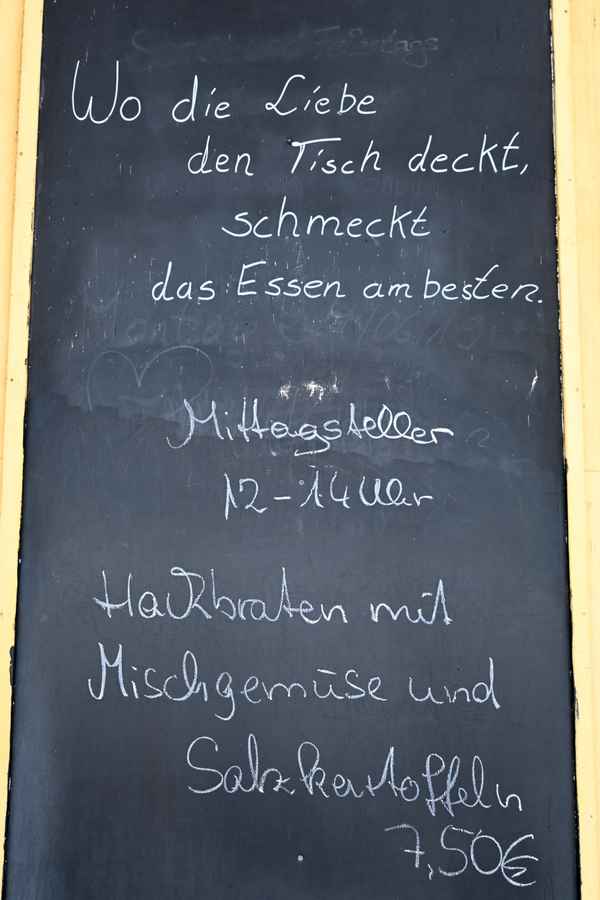 Wo die Liebe
den Tisch deckt,
schmeckt
das Essen am besten.
Mittagsteller
12-14 Uhr
Hackbraten mit
Mischgemüse und
Salzkartoffeln
7,50€